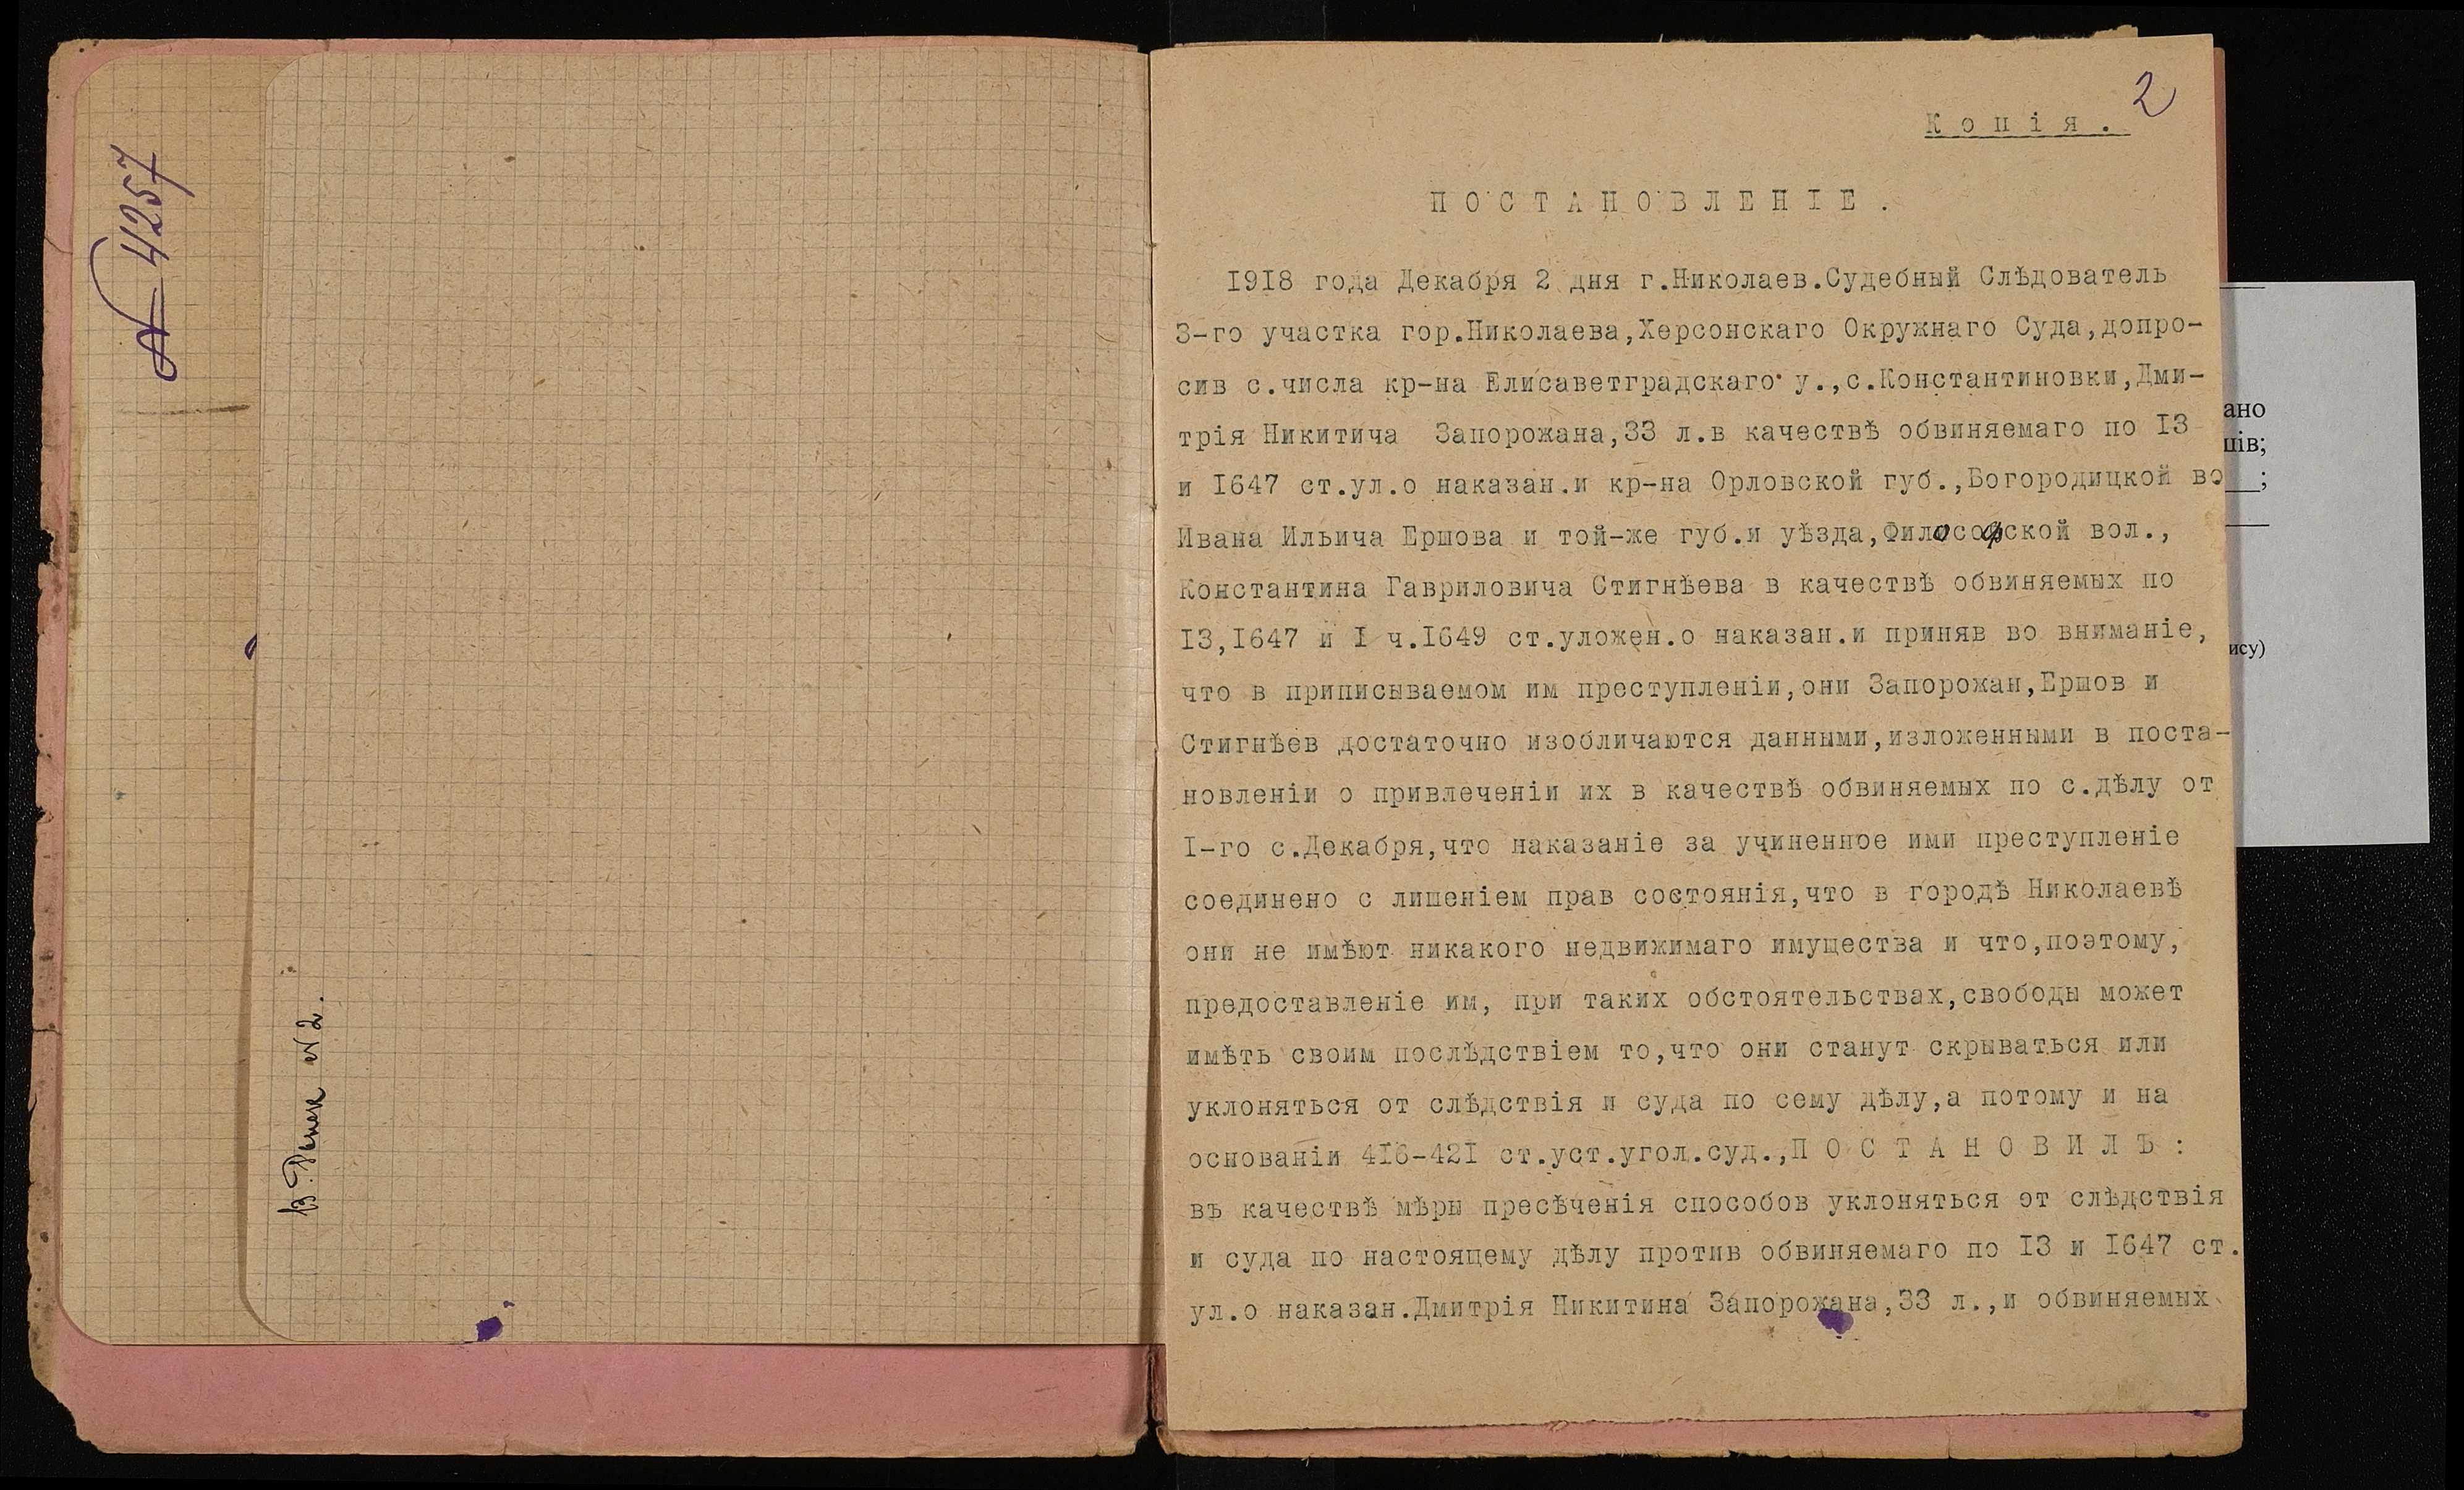 № 4257
2
Копія.
ПОСТАНОВЛЕНІЕ.
1918 года Декабря 2 дня г.Николаев.Судебный Слѣдователь
3-го участка гор.Николаева,Херсонскаго Окружнаго Суда,допро-
сив с.числа кр-на Елисаветградскаго у.,с.Константиновки,Дми-
трія Никитича Запорожана,33 л.в качествѣ обвиняемаго по I3
и I647 ст.ул.о наказан.и кр-на Орловской губ.,Богородицкой во
Ивана Ильича Ершова и той-же губ.и уѣзда,Философской вол.,
Константина Гавриловича Стигнѣева в качествѣ обвиняемых по
I3,I647 и I ч.I649 ст.уложен.о наказан.и приняв во вниманіе,
что в приписываемом им преступленіи,они Запорожан,Ершов и
Стигнѣев достаточно изобличаются данными,изложенными в поста-
новленіи о привлеченіи их в качествѣ обвиняемых по с.дѣлу от
I-го с.Декабря,что наказаніе за учиненное ими преступленіе
соединено с лишеніем прав состоянія,что в городѣ Николаевѣ
они не имѣют никакого недвижимаго имущества и что,поэтому,
предоставленіе им, при таких обстоятельствах,свободы может
имѣть своим послѣдствіем то,что они станут скрываться или
уклоняться от слѣдствія и суда по сему дѣлу,а потому и на
основаніи 4I6-42I ст.уст.угол.суд.,ПОСТАНОВИЛЪ:
въ качествѣ мѣры пресѣченія способов уклоняться от слѣдствія
и суда по настоящему дѣлу против обвиняемаго по I3 и I647 ст.
ул.о наказан.Дмитрія Никитина Запорожана,33 л.,и обвиняемых
ано
ців;
;
ису)